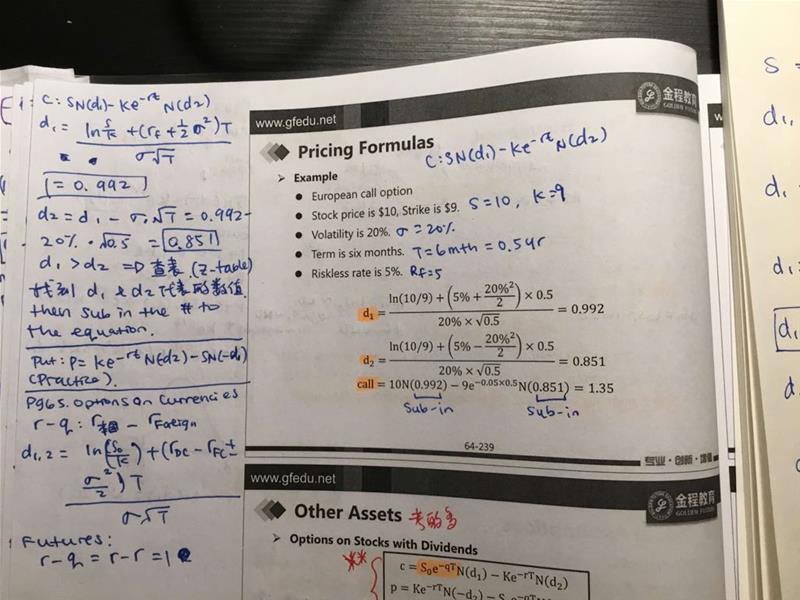 C: SN(d1) - Ke^-rt N(d2)
d1 = ln S/K + (rf + 1/2 σ²)T
σ√T
(= 0.992)
d2 = d1 - σ√T = 0.992 -
20% · √0.5 = 0.851
d1 > d2 => 查表 (Z-table)
找到 d1 & d2 代表的数值,
then sub in the # to
the equation.
Put: P = Ke^-rt N(-d2) - SN(-d1)
(Practice).
Pg65. Options on currencies
r - q: r - rForeign
d1,2 = ln(S0/K) + (rDC - rFC ±
σ²/2)T
σ√T
Futures:
r - q = r - r = 1
www.gfedu.net
金程教育
GOLDEN FUTURE
Pricing Formulas
C: SN(d1) - Ke^-rt N(d2)
➢ Example
● European call option
● Stock price is $10, Strike is $9. S=10, K=9
● Volatility is 20%. σ=20%
● Term is six months. T=6mth = 0.5yr
● Riskless rate is 5%. Rf=5
d₁ = (ln(10/9) + (5% + 20%²/2) × 0.5) / (20% × √0.5) = 0.992
d₂ = (ln(10/9) + (5% − 20%²/2) × 0.5) / (20% × √0.5) = 0.851
call = 10N(0.992) − 9e^−0.05×0.5 N(0.851) = 1.35
Sub-in Sub-in
64-239
专业·创新·增值
www.gfedu.net
金程教育
GOLDEN FUTURE
Other Assets 考的多
➢ Options on Stocks with Dividends
** c = S₀e^−qT N(d₁) − Ke^−rT N(d₂)
p = Ke^−rT N(−d₂) − S₀e^−qT N(−d₁)
S =
d1,
d1
d1 =
d1
d